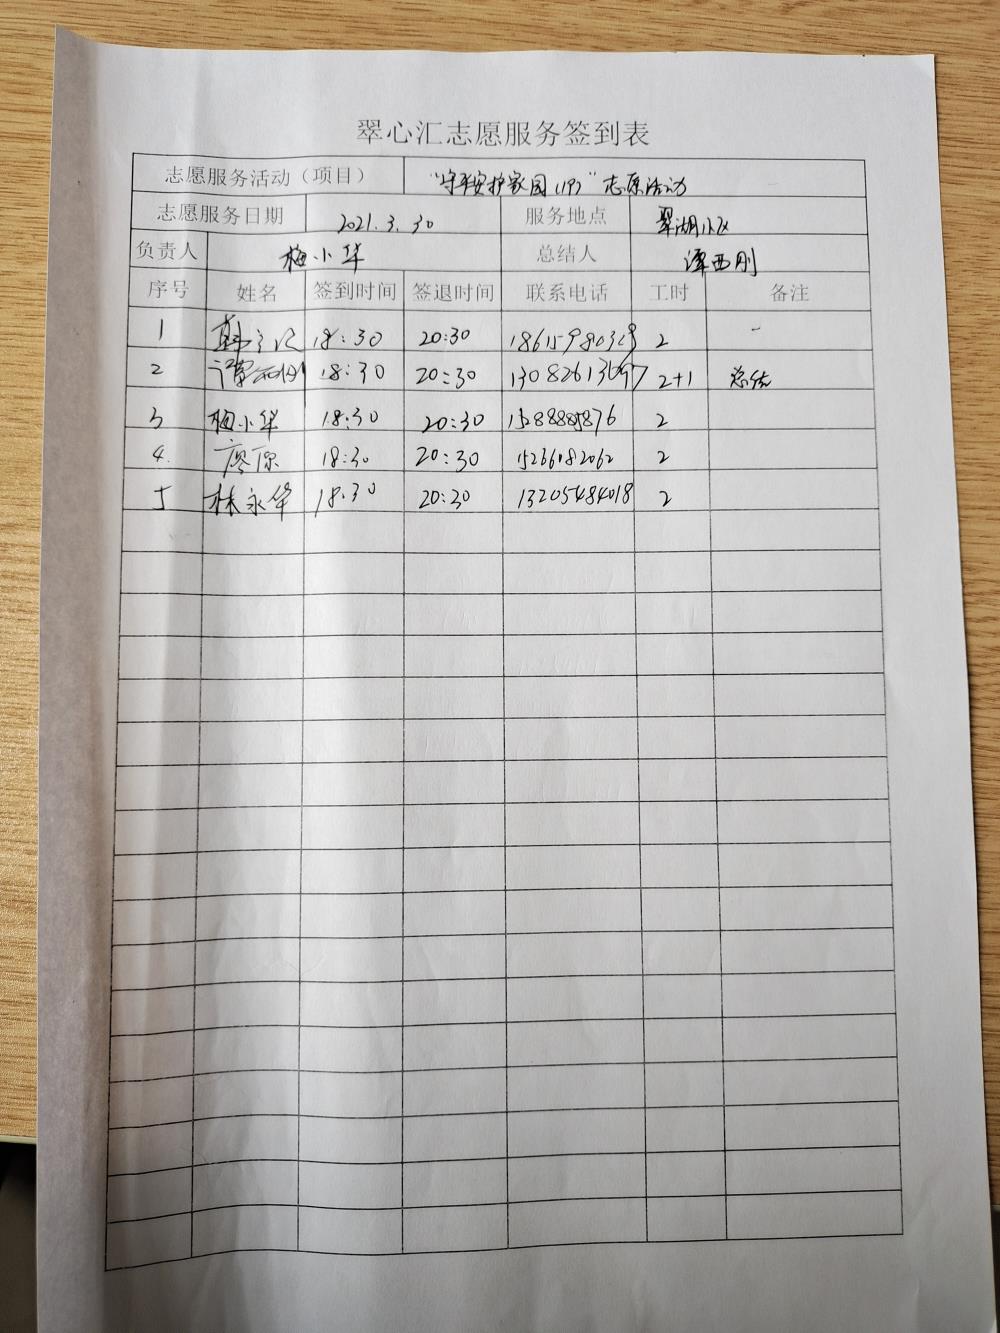 翠心汇志愿服务签到表
志愿服务活动（项目） “守平安护家园（19）”志愿活动
志愿服务日期 2021.3.30 服务地点 翠湖小区
负责人 梅小华 总结人 谭西刚
序号 姓名 签到时间 签退时间 联系电话 工时 备注
1 18:30 20:30 2
2 谭西刚 18:30 20:30 13082613697 2+1 总结
3 梅小华 18:30 20:30 15288885876 2
4. 廖原 18:30 20:30 15266182062 2
5 林永华 18:30 20:30 13205484018 2